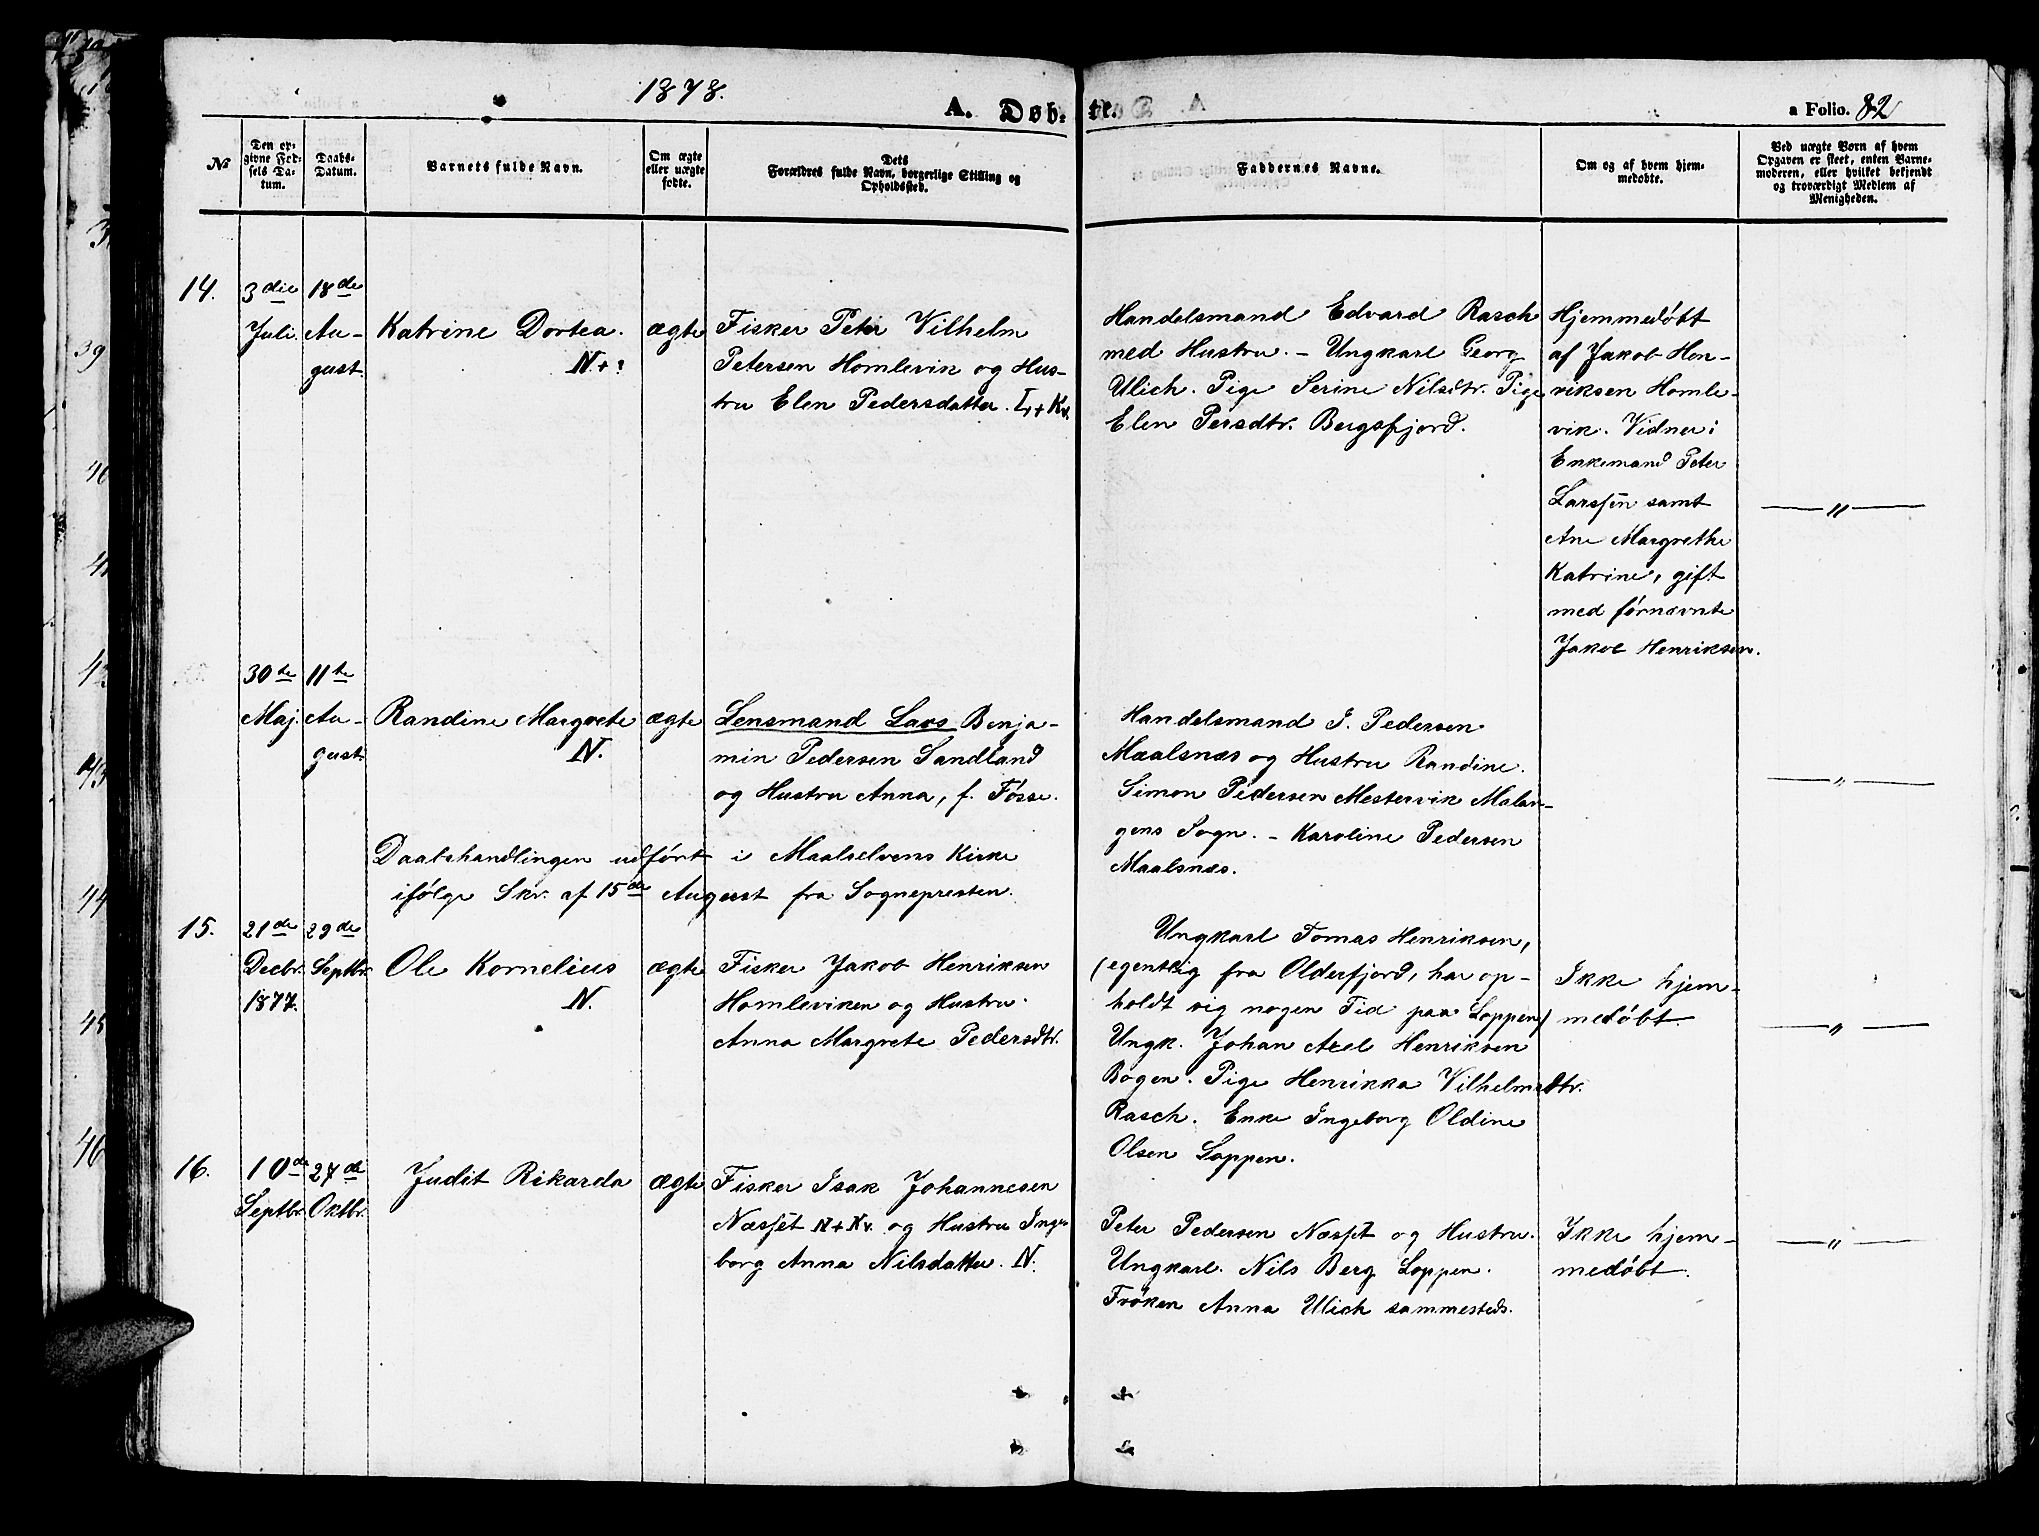 1878.
A. Døb-
te.
a Folio. 82
No
Den op-
givne Fød-
sels Da-
tum.
Daabs-
Datum.
Barnets fulde Navn.
Om ægte
eller uægte
fødte.
Dets
Forældres fulde Navn, borgerlige Stilling og
Opholdssted.
Faddernes Navne.
Om og af hvem hjem-
medøbte.
Ved uægte Børn af hvem
Opgaven er skeet, enten Barne-
moderen, eller hvilket bekjendt
og troværdigt Medlem af
Menigheden.
14.
3die
Juli.
18de
Au-
gust.
Katrine Dortea.
N+?
ægte
Fisker Peter Vilhelm
Petersen Homlevik og Hus-
tru Elen Pedersdatter. L+Kv.
Handelsmand Edvard Rasch
med Hustru. – Ungkarl Georg
Ulich. Pige Serine Nilsdtr. Pige
Elen Persdtr. Bergsfjord.
Hjemmedøbt
af Jakob Hen-
riksen Homle-
vik. Vidner:
Enkemand Peter
Larssen samt
Ane Margrethe
Katrine, gift
med førnævnte
Jakob Henriksen.
— " —
30te
Maj.
11te
Au-
gust.
Randine Margrete
N.
ægte
Lensmand Lars Benja-
min Pedersen Sandland
og Hustru Anna, f. Fosse.
Daabshandlingen udført i Maalselvens Kirke
ifølge Skr. af 15de August fra Sognepresten.
Handelsmand J. Pedersen
Maalsnæs og Hustru Randine.
Simon Pedersen Mestervik Malan-
gens Sogn. – Karoline Pedersen
Maalsnæs.
— " —
15.
21de
Decbr.
1877.
29de
Septbr.
Ole Kornelius
N.
ægte
Fisker Jakob Henriksen
Homleviken og Hustru
Anna Margrete Pedersdtr.
Ungkarl Tomas Henriksen,
(egentlig fra Olderfjord, har op-
holdt sig nogen Tid paa Loppen)
Ungk. Johan Axel Henriksen
Bogen. Pige Henrikka Vilhelmsdtr.
Rasch. Enke Ingeborg Oldine
Olsen Loppen.
Ikke hjem-
medøbt.
— " —
16.
10de
Septbr.
27de
Oktbr.
Judit Rikarda
ægte
Fisker Isak Johannesen
Næsset N+Kv. og Hustru Inge-
borg Anna Nilsdatter. N.
Peter Pedersen Næsset og Hustru.
Ungkarl. Nils Berg Loppen.
Frøken Anna Ulich sammesteds.
Ikke hjem-
medøbt.
— " —
39
40
41
42
43
44
45
46